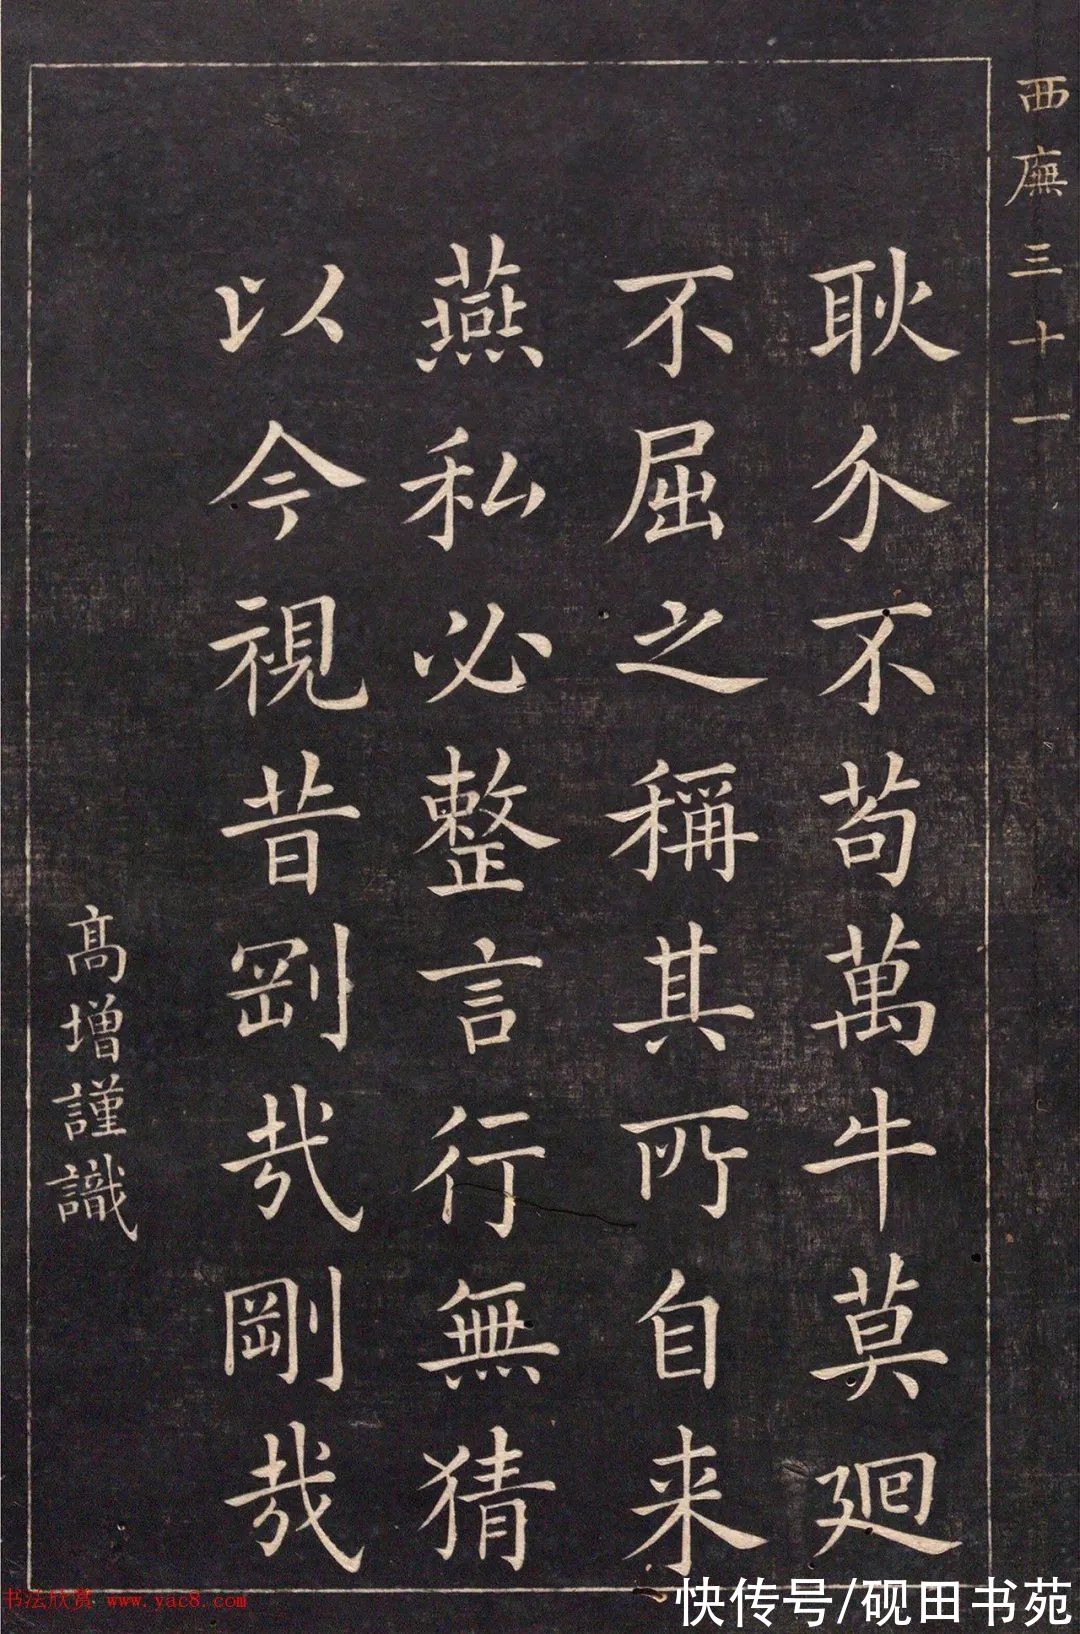 西廡三十一
耿介不苟萬牛莫廻
不屈之稱其所自来
燕私必整言行無猜
以今視昔剛哉剛哉
高增謹識
书法欣赏 www.yac8.com
快传号/砚田书苑